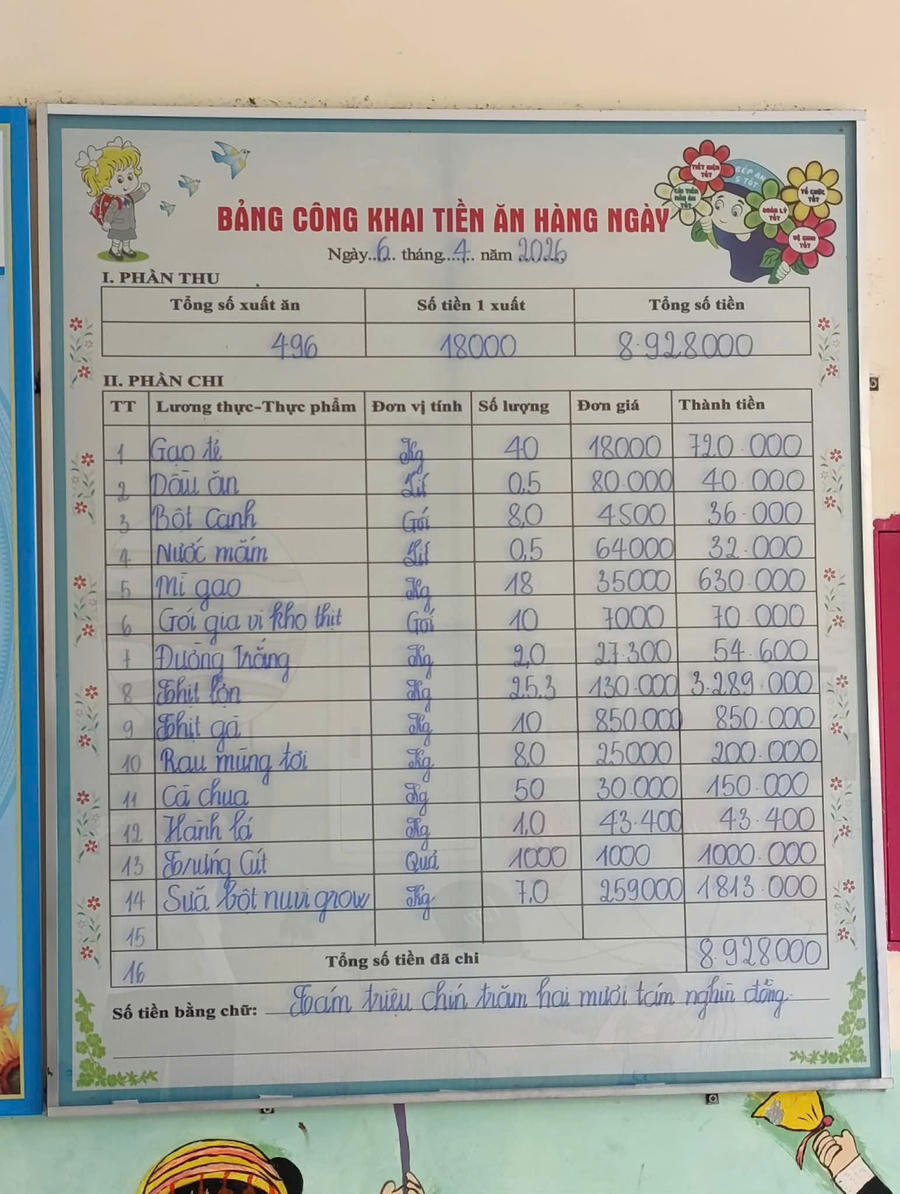 TIẾT KIỆM TỐT
CẢI TIẾN MÓN ĂN TỐT
BẾP ĂN 5 TỐT
QUẢN LÝ TỐT
TỔ CHỨC TỐT
VỆ SINH TỐT
BẢNG CÔNG KHAI TIỀN ĂN HÀNG NGÀY
Ngày..6.. tháng..4.. năm 2026
I. PHẦN THU
Tổng số xuất ăn Số tiền 1 xuất Tổng số tiền
496 18000 8.928000
II. PHẦN CHI
TT Lương thực-Thực phẩm Đơn vị tính Số lượng Đơn giá Thành tiền
1 Gạo tẻ Kg 40 18000 720.000
2 Dầu ăn Lít 0,5 80.000 40.000
3 Bột canh Gói 8,0 4500 36.000
4 Nước mắm Lít 0,5 64000 32.000
5 Mì gạo Kg 18 35000 630.000
6 Gói gia vị kho thịt Gói 10 7000 70.000
7 Đường trắng Kg 2,0 27.300 54.600
8 Thịt lợn Kg 25,3 130.000 3.289.000
9 Thịt gà Kg 10 850.000 850.000
10 Rau mùng tơi Kg 8,0 25000 200.000
11 Cà chua Kg 50 30.000 150.000
12 Hành lá Kg 1,0 43.400 43.400
13 Trứng Cút Quả 1000 1000 1000.000
14 Sữa bột nuvi grow Kg 7,0 259000 1813.000
15
16 Tổng số tiền đã chi 8.928000
Số tiền bằng chữ: Tám triệu chín trăm hai mươi tám nghìn đồng.